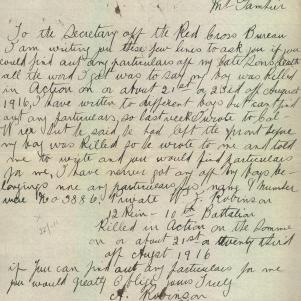 Mt Gambier
To the Secretary off the Red Cross Bureau
I am writing you these few lines to ask you if you
could find out any particulars off my late Sons death
all the word I got was to say my boy was killed
in Action on or about 21st or 23rd off August
1916, I have written to different boys but can find
out any particulars, so last week I wrote to Col-
but he said he had left the front before
my boy was killed so he wrote to me and told
me to write and you would find particulars
for me, I have never got any off my boys be-
longings nore any particulars his name & number
was No 3886. Private W. J. Robinson
12 Rein - 10th Battalion
Killed in Action on the Somme
on or about 21st or twenty third
off August 1916
if you can find out any particulars for me
you would greatly oblige yours Truly
A. Robinson